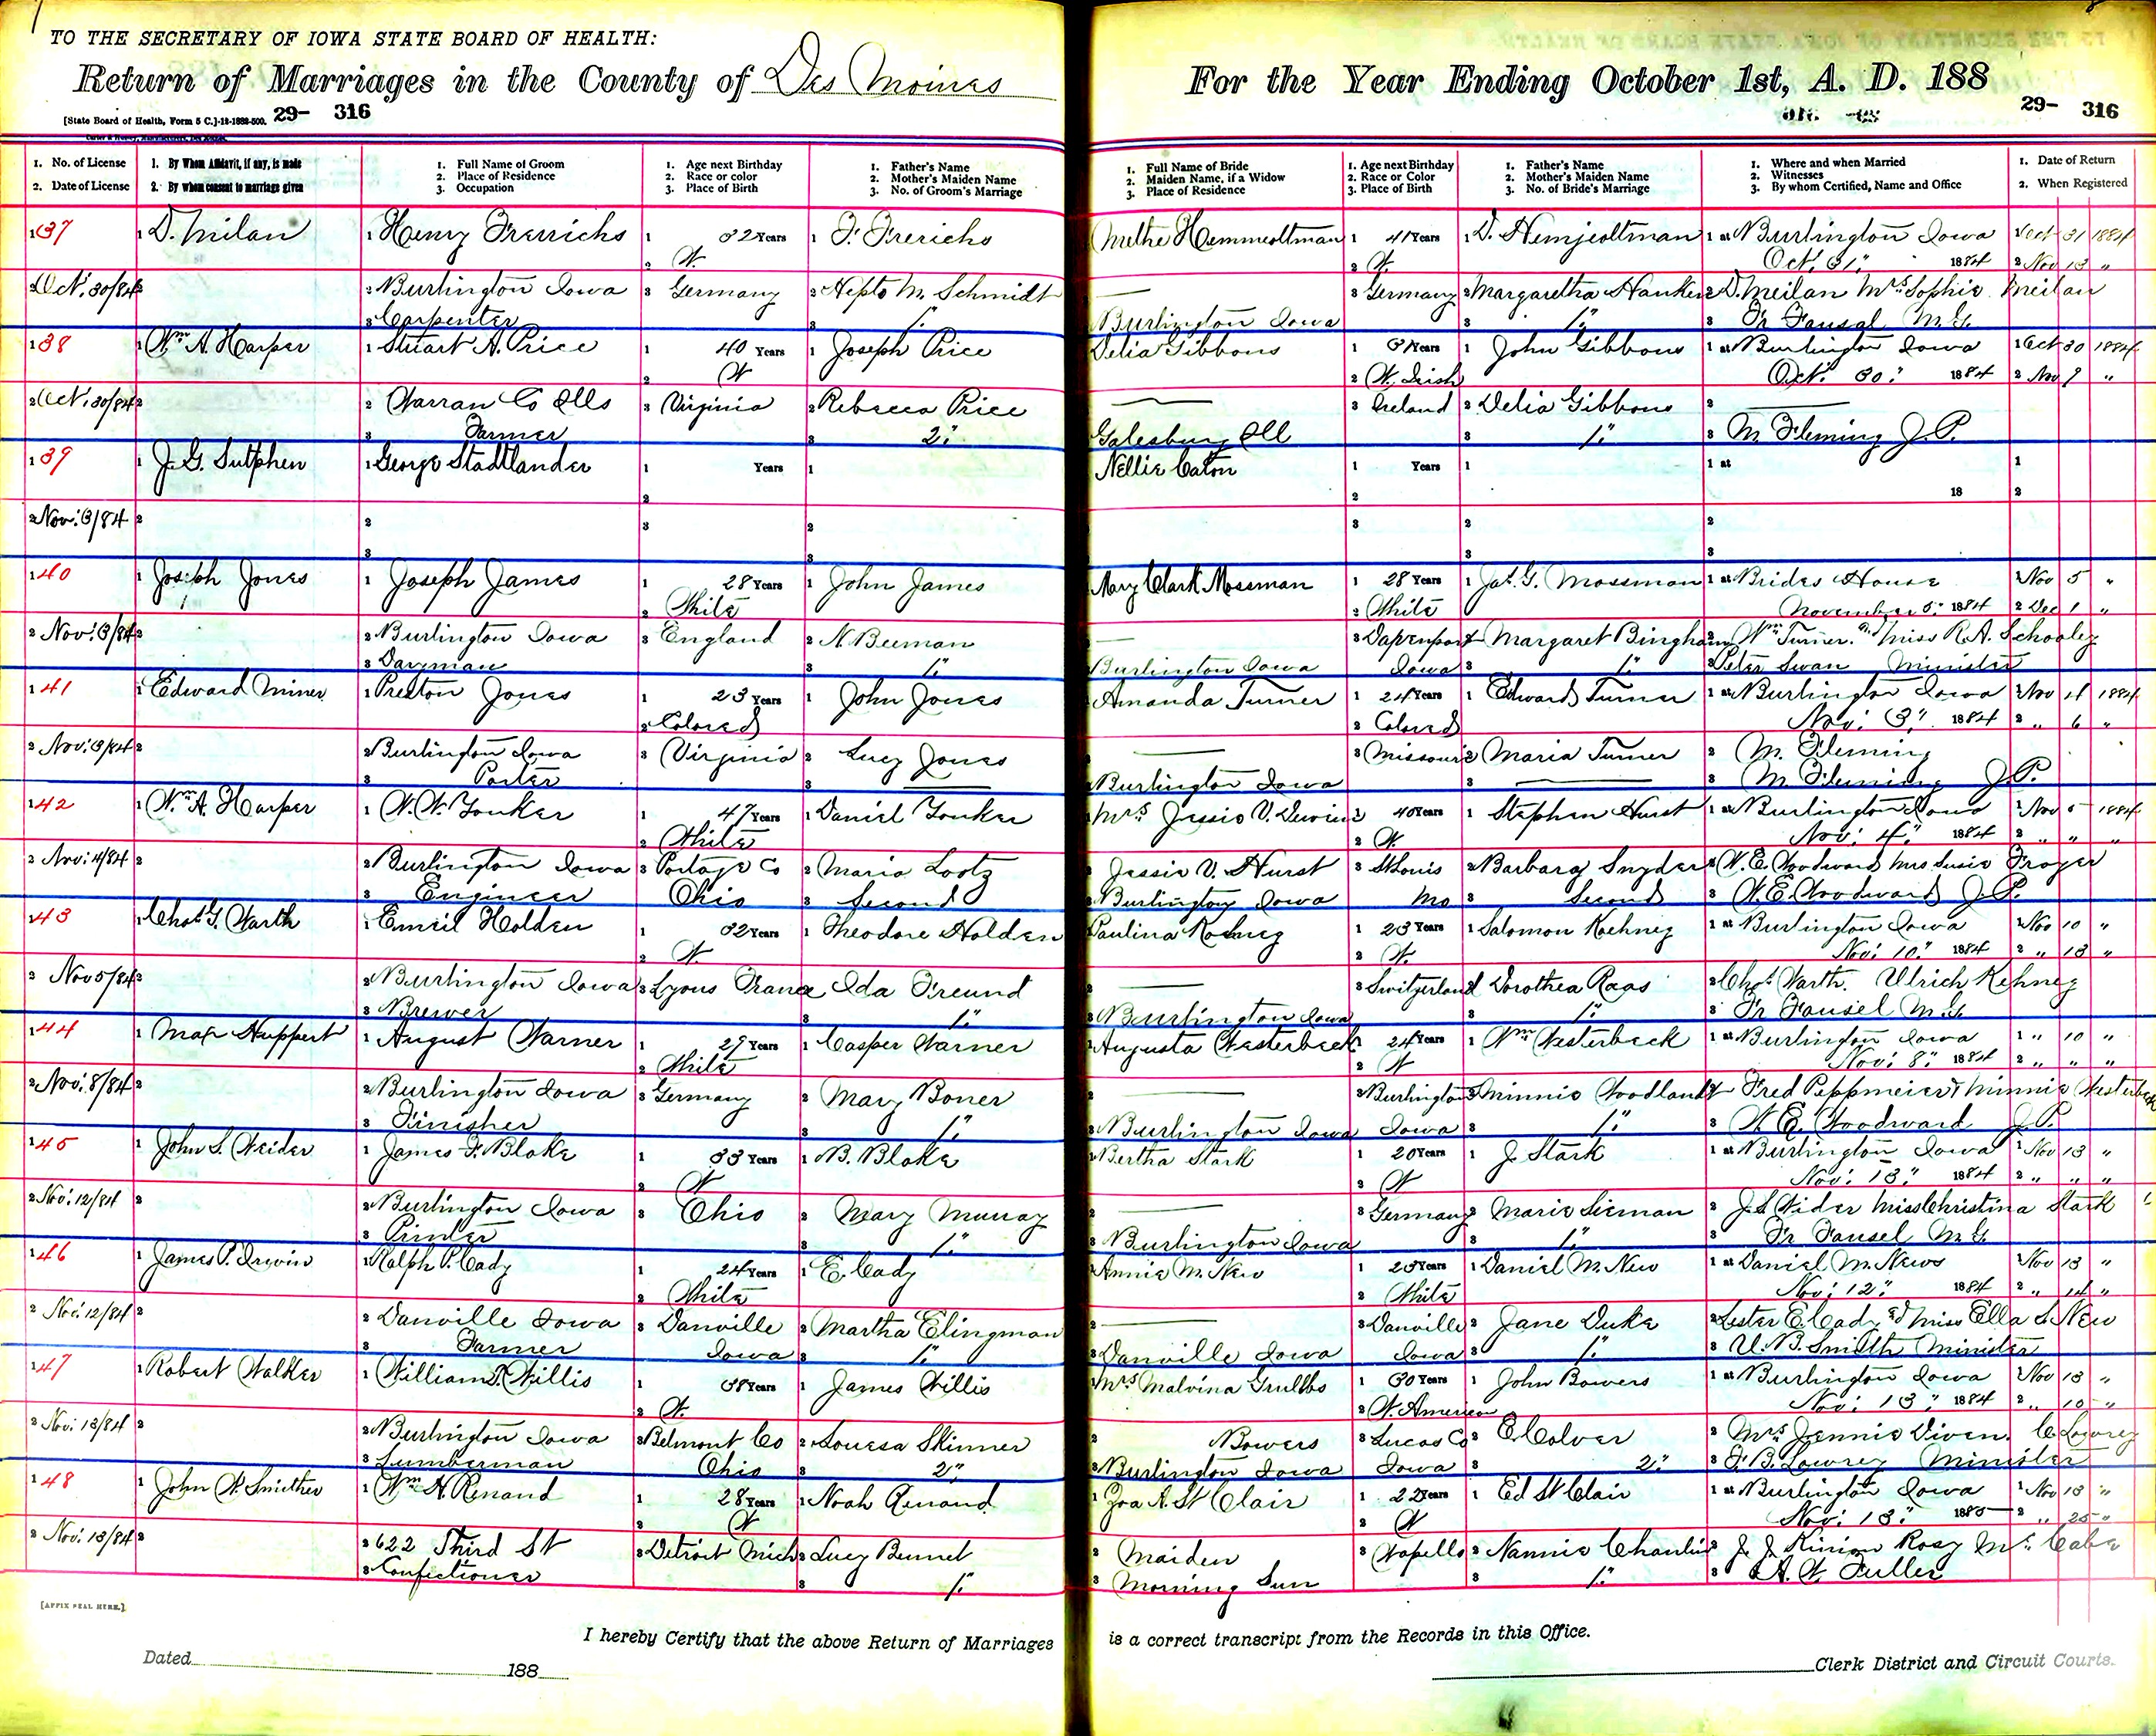 TO THE SECRETARY OF IOWA STATE BOARD OF HEALTH:
Return of Marriages in the County of Des Moines
[State Board of Health, Form 5 C.]-12-1882-500. 29- 316
1. No. of License
2. Date of License
1. By Whom Affidavit, if any, is made
2. By whom consent to marriage given
1. Full Name of Groom
2. Place of Residence
3. Occupation
1. Age next Birthday
2. Race or color
3. Place of Birth
1. Father's Name
2. Mother's Maiden Name
3. No. of Groom's Marriage
For the Year Ending October 1st, A. D. 188
29- 316
1. Full Name of Bride
2. Maiden Name, if a Widow
3. Place of Residence
1. Age next Birthday
2. Race or Color
3. Place of Birth
1. Father's Name
2. Mother's Maiden Name
3. No. of Bride's Marriage
1. Where and when Married
2. Witnesses
3. By whom Certified, Name and Office
1. Date of Return
2. When Registered
1 37 1 D. Milan 1 Henry Frerichs 1 32 Years 1 F. Frerichs Methe Hemmeoltman 1 41 Years 1 D. Hemjeoltman 1 at Burlington Iowa Oct 31 1884
2 W. 2 W. Oct. 31" 1884 2 Nov 13 "
2 Oct. 30/84 2 Burlington Iowa 3 Germany 2 M. Schmidt 3 Germany 2 Margaretha Hanken 2 D. Meilan Mrs. Sophie Meilan
3 Carpenter 3 1" Burlington Iowa 3 1" 3 Fr Fausel M.G.
1 38 1 Wm A. Harper 1 Stuart A. Price 1 40 Years 1 Joseph Price Delia Gibbons 1 31 Years 1 John Gibbons 1 at Burlington Iowa 1 Oct 30 1884
2 W 2 W. Irish Oct. 30" 1884 2 Nov 7 "
2 Oct. 30/84 2 2 Warran Co Ills 3 Virginia 2 Rebecca Price 3 Ireland 2 Delia Gibbons 2
3 Farmer 3 2" Galesburg Ill 3 1" 3 M Fleming J.P.
1 39 1 J. G. Sutphen 1 George Stadtlander 1 Years 1 Nellie Caton 1 Years 1 1 at 1
2 2 18 2
2 Nov. 3/84 2 2 3 2 3 2 2
3 3 3 3
1 40 1 Joseph Jones 1 Joseph James 1 28 Years 1 John James Mary Clark Mossman 1 28 Years 1 Jas. G. Mossman 1 at Brides House Nov 5 "
2 White 2 White November 5" 1884 2 Dec 1 "
2 Nov. 3/84 2 2 Burlington Iowa 3 England 2 N. Beeman 3 Davenport Margaret Bingham Wm Turner. Miss R.A. Schooley
3 3 1" Burlington Iowa Iowa 3 1" Peter Swan Minister
1 41 1 Edward Miner 1 Preston Jones 1 23 Years 1 John Jones Amanda Turner 1 24 Years 1 Edward Turner 1 at Burlington Iowa Nov 4 1884
2 Colored 2 Colored Nov. 3" 1884 2 " 6 "
2 Nov. 3/84 2 2 Burlington Iowa 3 Virginia 2 Lucy Jones 3 Missouri 2 Maria Turner 2 M. Fleming
3 Porter 3 Burlington Iowa 3 3 M. Fleming J.P.
1 42 1 Wm A. Harper 1 W. W. Yonker 1 47 Years 1 Daniel Yonker Mrs. Jessie V. 1 40 Years 1 Stephen Hurst 1 at Burlington Iowa 1 Nov 5 1884
2 White 2 W. Nov. 4" 1884 2 " " "
2 Nov. 4/84 2 2 Burlington Iowa 3 Portage Co 2 Maria Lootz 2 Jessie V. Hurst 3 St Louis 2 Barbara Snyder 2 W. E. Woodward Mrs Susie Troxer
3 Engineer Ohio 3 Second 3 Burlington Iowa Mo 3 Second 3 W. E. Woodward J.P.
1 43 1 Chas. G. Warth 1 Emril Holden 1 32 Years 1 Theodore Holden Paulina 1 23 Years 1 Salomon Koehney 1 at Burlington Iowa Nov 10 "
2 W 2 W. Nov. 10" 1884 2 " 13 "
2 Nov 5/84 2 2 Burlington Iowa 3 Lyons France 2 Ida Freund 2 3 Switzerland 2 Dorothea Raas 2 Chas. Warth. Ulrich Kehney
3 Brewer 3 1" 3 Burlington Iowa 3 1" 3 Fr Fausel M.G.
1 44 1 Max Huppert 1 August Warner 1 27 Years 1 Casper Warner Augusta Westerbeck 24 Years 1 Wm Westerbeck 1 at Burlington Iowa 1 " 10 "
2 White 2 W Nov. 8" 1884 2 " " "
2 Nov. 8/84 2 2 Burlington Iowa 3 Germany 2 Mary Boner 2 Burlington 2 Minnie Woodland Fred Peppmeier & Minnie Westerbeck
3 Finisher 3 1" 3 Burlington Iowa Iowa 3 1" 3 W. E. Woodward J.P.
1 45 1 John S. Weider 1 James F. Blake 1 33 Years 1 B. Blake Bertha Stark 1 20 Years 1 J. Stark 1 at Burlington Iowa 1 Nov 13 "
2 W 2 W Nov. 13" 1884 2 " " "
2 Nov. 12/84 2 2 Burlington Iowa 3 Ohio 2 Mary Murray 2 3 Germany 2 Marie Sieman 2 J.S. Wider Miss Christina Stark
3 Printer 3 1" 3 Burlington Iowa 3 1" 3 Fr Fausel M.G.
1 46 1 James P. Irwin Ralph P. Cady 1 24 Years 1 E. Cady Annie M. New 1 23 Years 1 Daniel M. New 1 at Daniel M. News Nov 13 "
2 White 2 White Nov. 12" 1884 2 " 14 "
2 Nov. 12/84 2 2 Danville Iowa 3 Danville 2 Martha Clingman 2 3 Danville 2 Jane Duke 2 Lester E Cady & Miss Ella S. New
3 Farmer Iowa 3 1" 3 Danville Iowa Iowa 3 1" 3 U. B. Smith Minister
1 47 1 Robert Walker 1 William Willis 1 38 Years 1 James Willis Mrs Malvina Grubbs 1 30 Years 1 John Bowers 1 at Burlington Iowa Nov 13 "
2 W. 2 W. American Nov. 13" 1884 2 " 15 "
2 Nov. 13/84 2 2 Burlington Iowa 3 Belmont Co 2 Louesa Skinner 2 Bowers 3 Lucas Co 2 E. Colver 2 Mrs Jennie Viven. C. Lowrey
3 Lumberman Ohio 3 2" 3 Burlington Iowa Iowa 3 2" 3 Lowrey Minister
1 48 1 John W. Smither 1 Wm A. Renand 1 28 Years 1 Noah Renand 1 A. St Clair 1 22 Years 1 Ed St Clair 1 at Burlington Iowa 1 Nov 13 "
2 W 2 W Nov. 13" 1885 2 " 25 "
2 Nov. 13/84 2 2 622 Third St 3 Detroit Mich 2 Lucy Bennet 2 Maiden 3 Wapello 2 Nannie 2 J. J. Kinion Rosy Mc. Cabe
3 Confictioner 3 1" 3 Morning Sun 3 1" 3 A. W. Fuller
[AFFIX SEAL HERE.]
I hereby Certify that the above Return of Marriages is a correct transcript from the Records in this Office.
Dated 188
Clerk District and Circuit Courts.